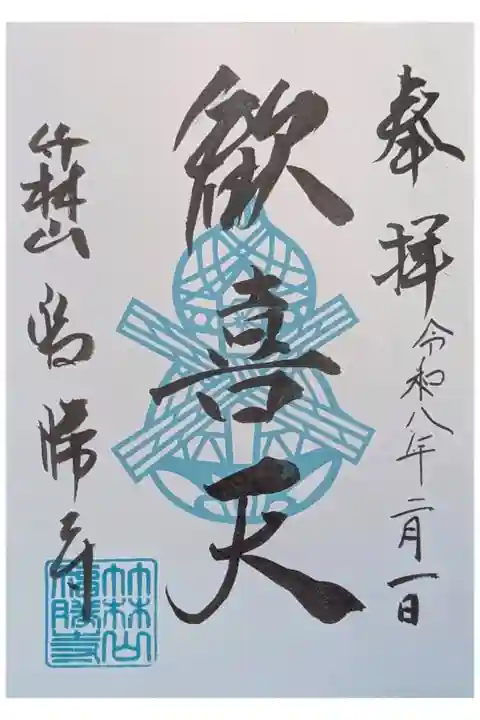 奉拝
令和八年二月一日
歓喜天
竹林山 福勝寺
竹林山
福勝寺